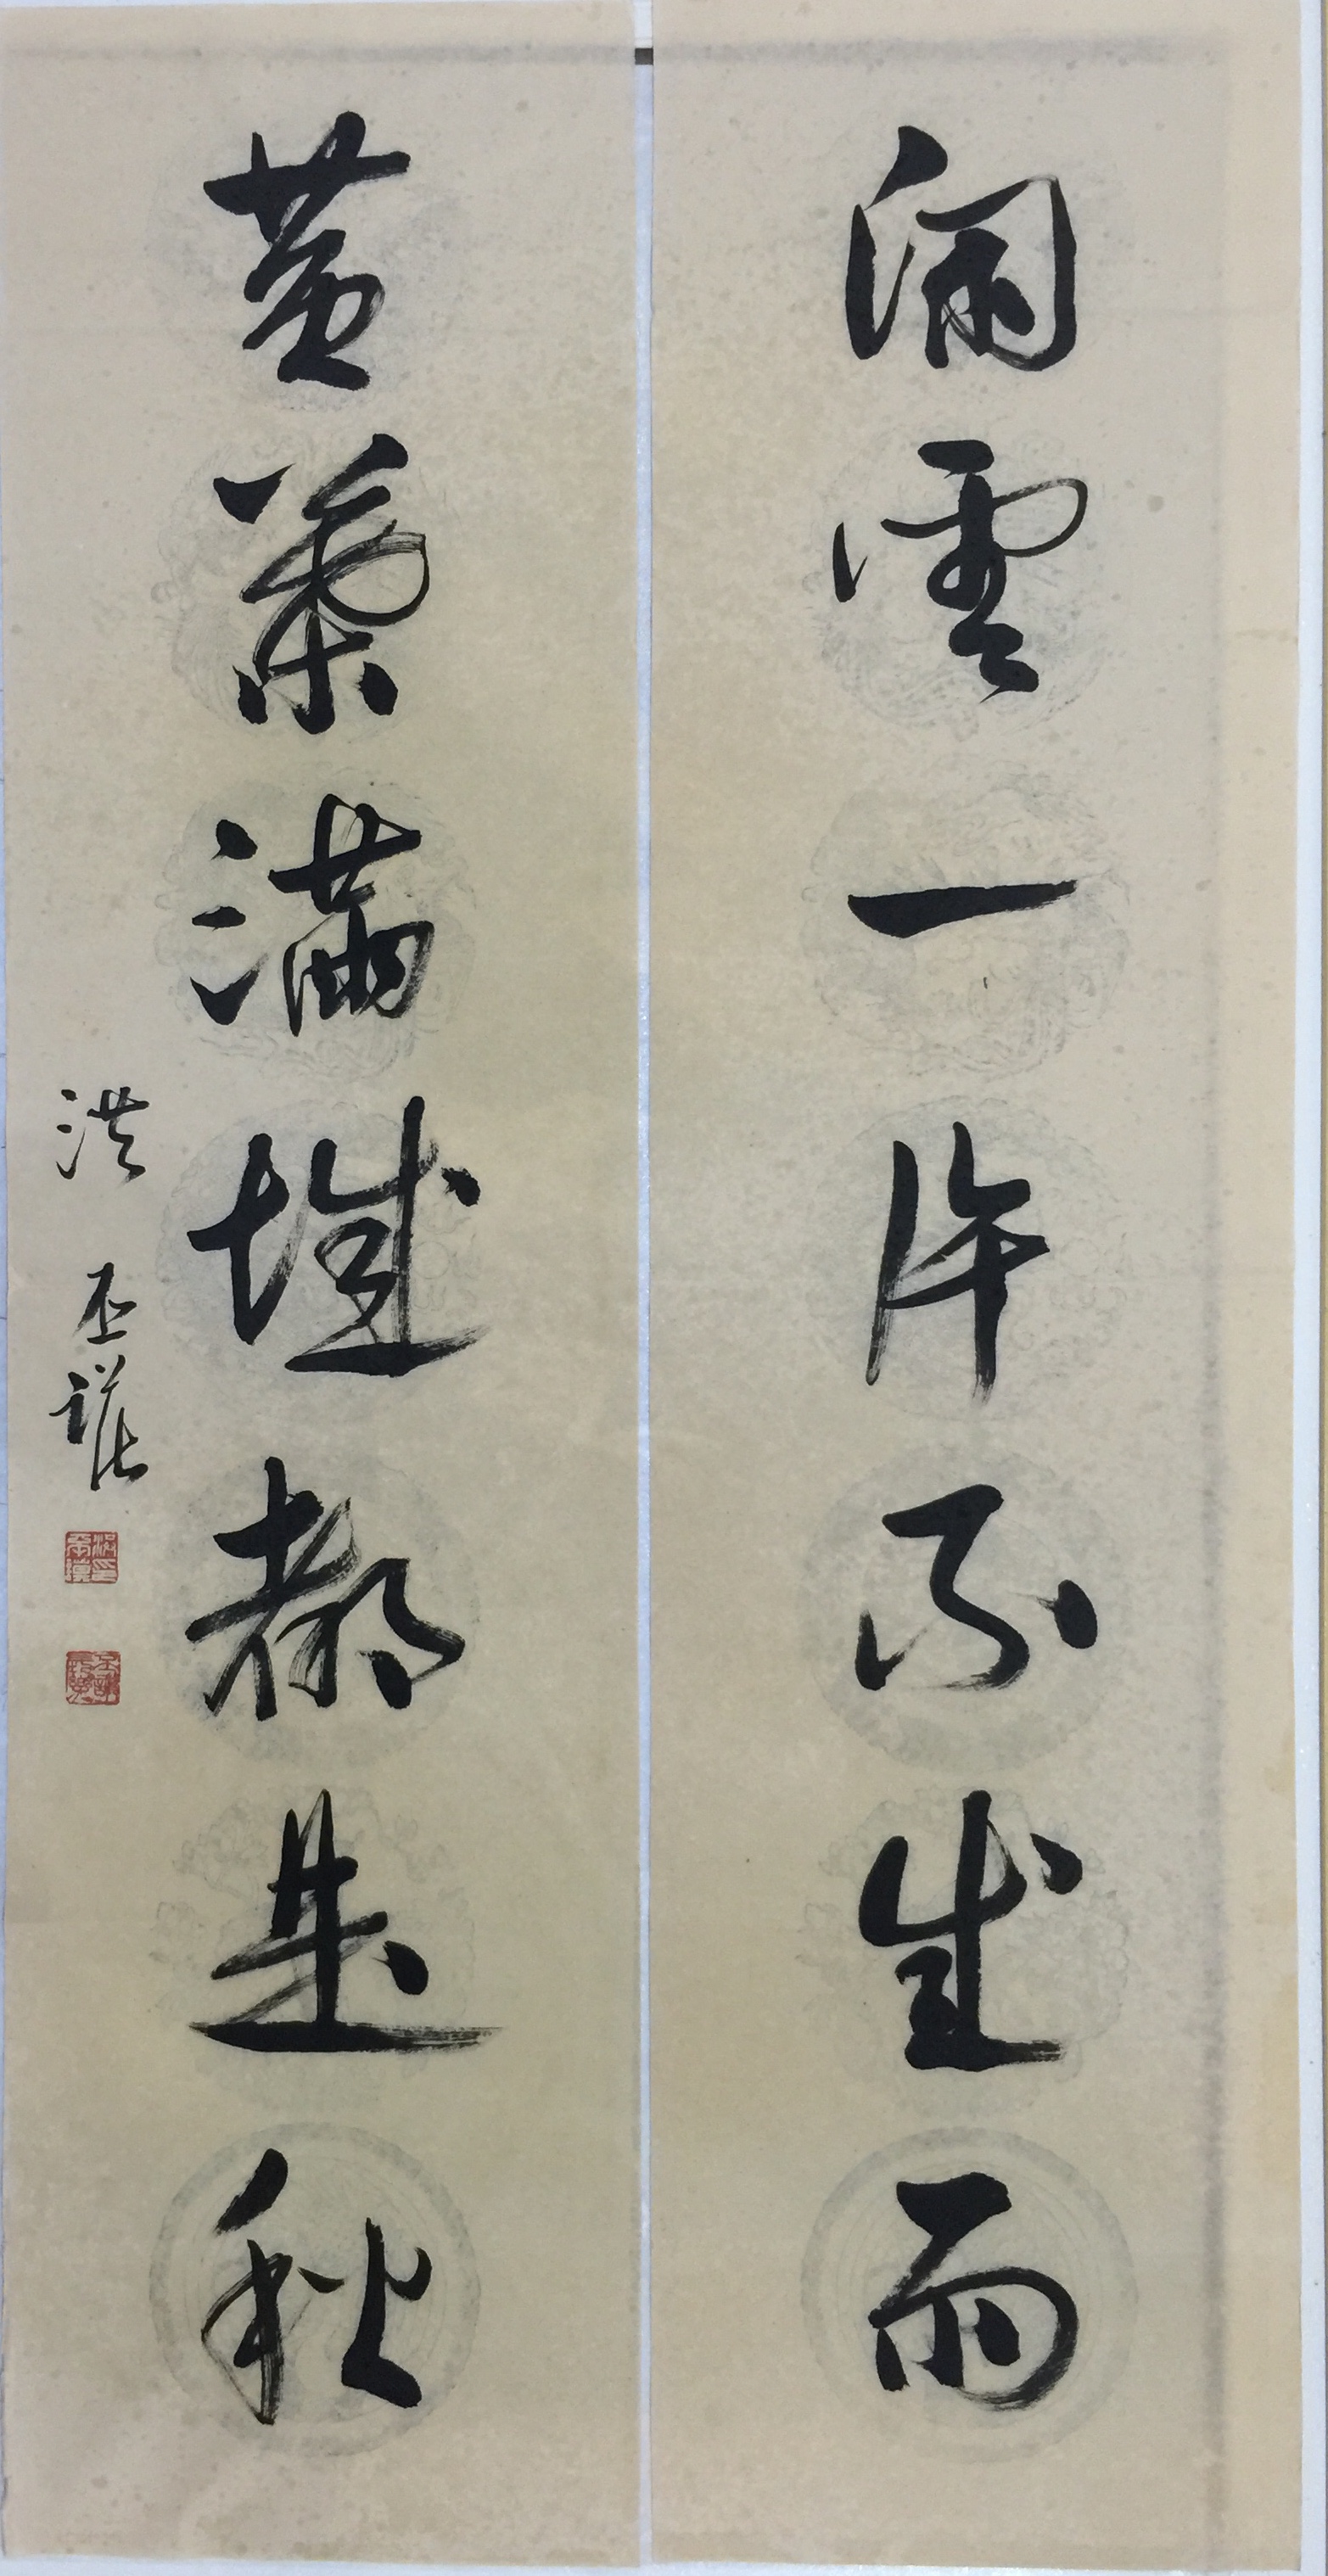 閒雲一片不成雨
黃葉滿城都是秋
洪丕謨